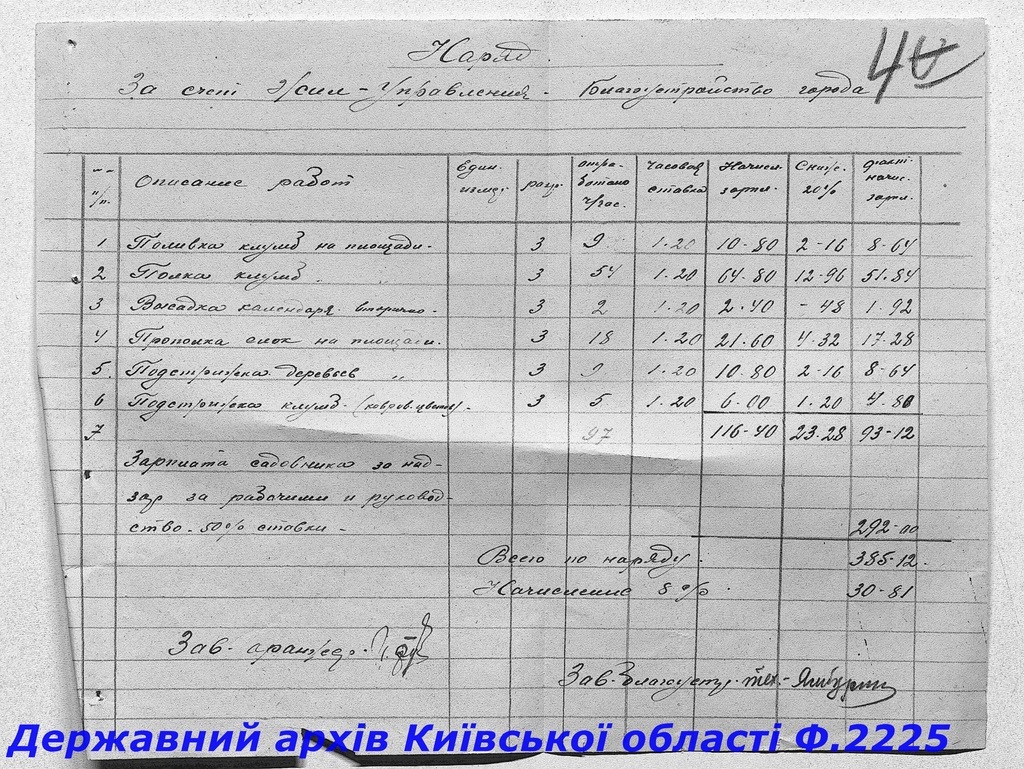 40
Наряд.
За счет Жил-Управления - Благоустройство города
п/п. Описание работ един. измер. разр. отра-ботано ч/час. Часовая ставка Начисл. зарпл. Сниж. 20% факт. начис. зарпл.
1 Поливка клумб на площади. 3 9 1.20 10-80 2-16 8-64
2 Полка клумб " " 3 54 1.20 64-80 12-96 51.84
3 Высадка календаря вторично. 3 2 1.20 2.40 - 48 1-92
4 Прополка елок на площади. 3 18 1.20 21.60 4-32 17-28
5. Подстрижка деревьев " 3 9 1.20 10-80 2-16 8-64
6 Подстрижка клумб. (ковров. цветов). 3 5 1.20 6-00 1.20 4.80
7 97 116-40 23-28 93-12
Зарплата садовника за над-
зор за рабочими и руковод-
ство. 50% ставки - 292-00
Всего по наряду. 385-12.
Начисление 8%. 30-81
Зав. оранжер.
Зав. благоустр. тех.-
Державний архів Київської області Ф.2225